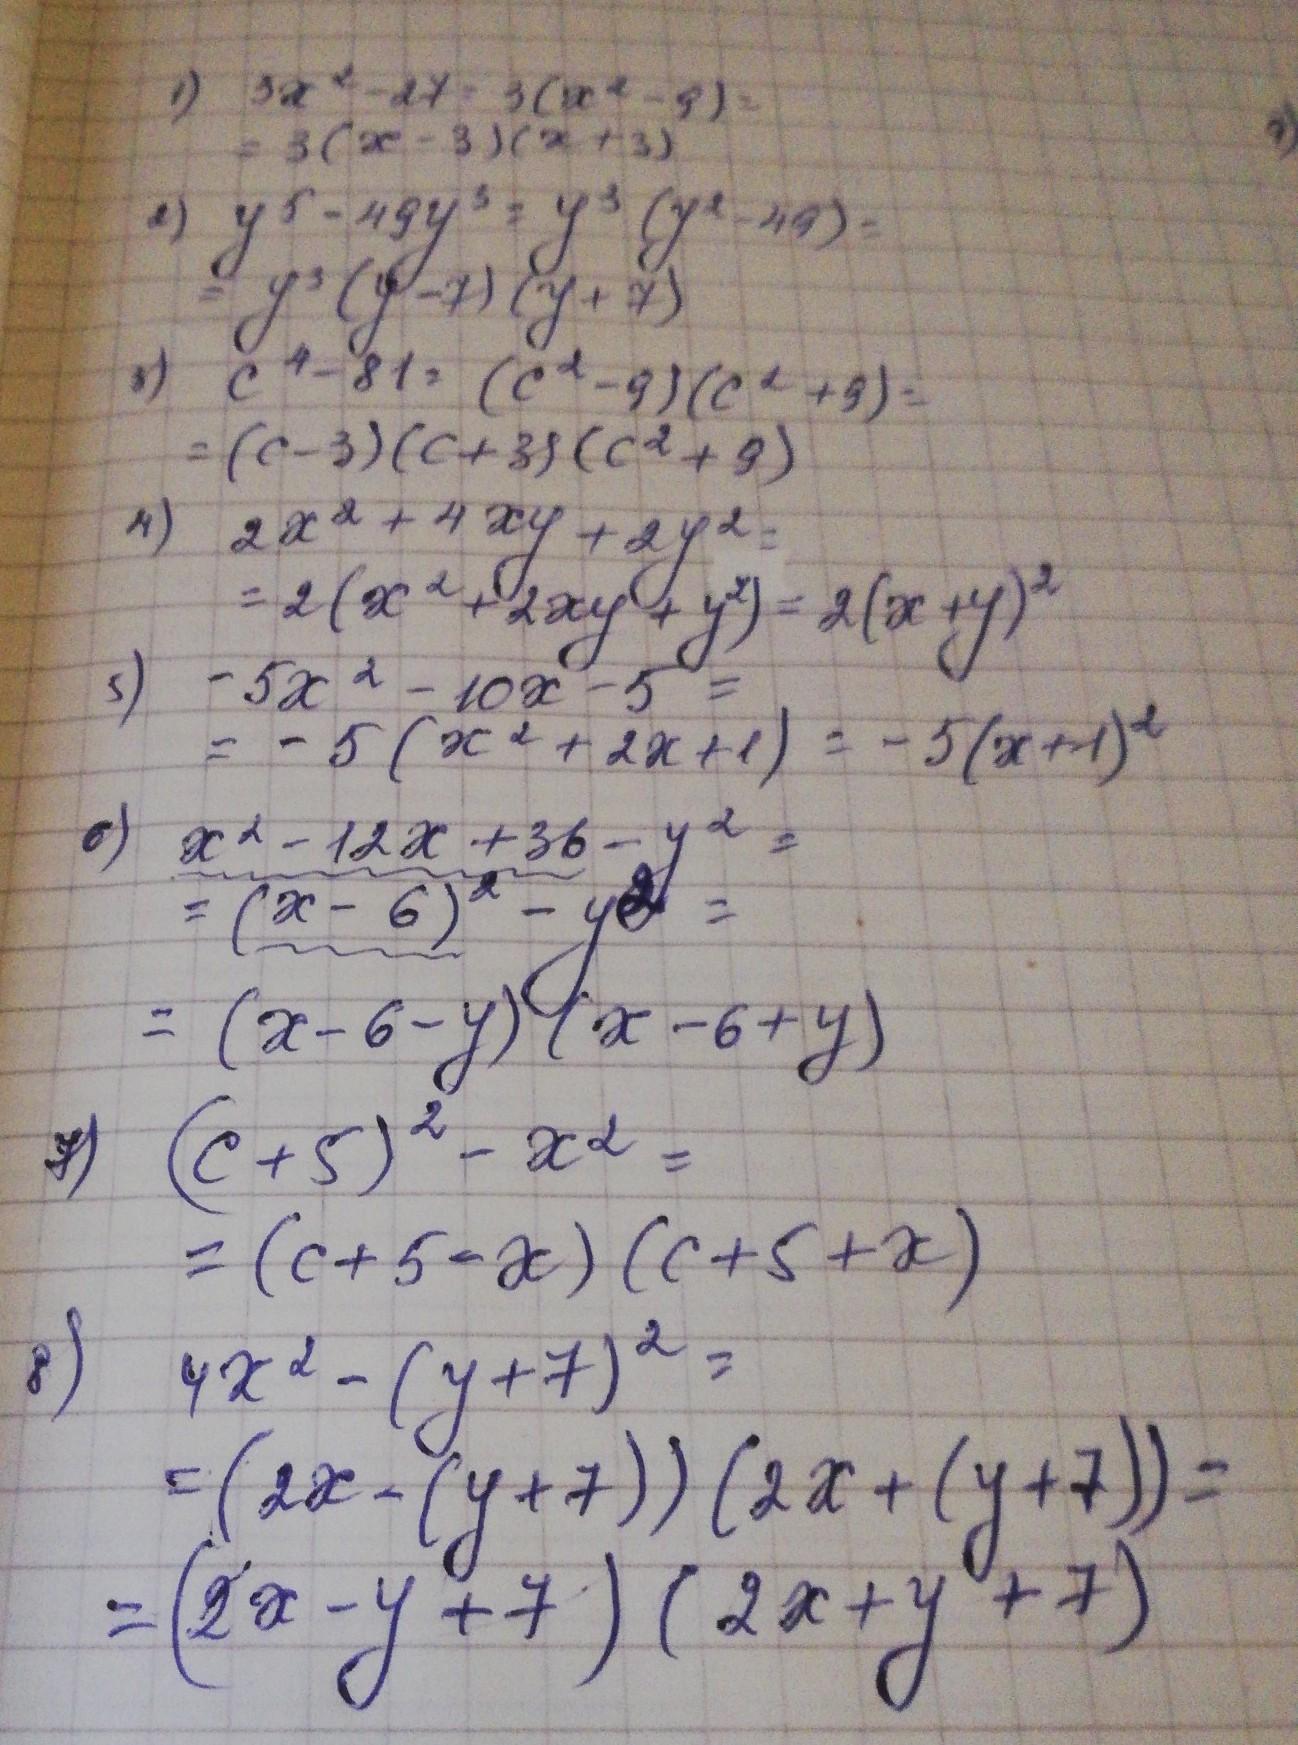 1) 3x² - 27 = 3(x² - 9) =
= 3(x - 3)(x + 3)
2) y⁵ - 49y³ = y³(y² - 49) =
= y³(y - 7)(y + 7)
3) c⁴ - 81 = (c² - 9)(c² + 9) =
= (c - 3)(c + 3)(c² + 9)
4) 2x² + 4xy + 2y² =
= 2(x² + 2xy + y²) = 2(x + y)²
5) -5x² - 10x - 5 =
= -5(x² + 2x + 1) = -5(x + 1)²
6) x² - 12x + 36 - y² =
= (x - 6)² - y² =
= (x - 6 - y)(x - 6 + y)
7) (c + 5)² - x² =
= (c + 5 - x)(c + 5 + x)
8) 4x² - (y + 7)² =
= (2x - (y + 7))(2x + (y + 7)) =
= (2x - y + 7)(2x + y + 7)